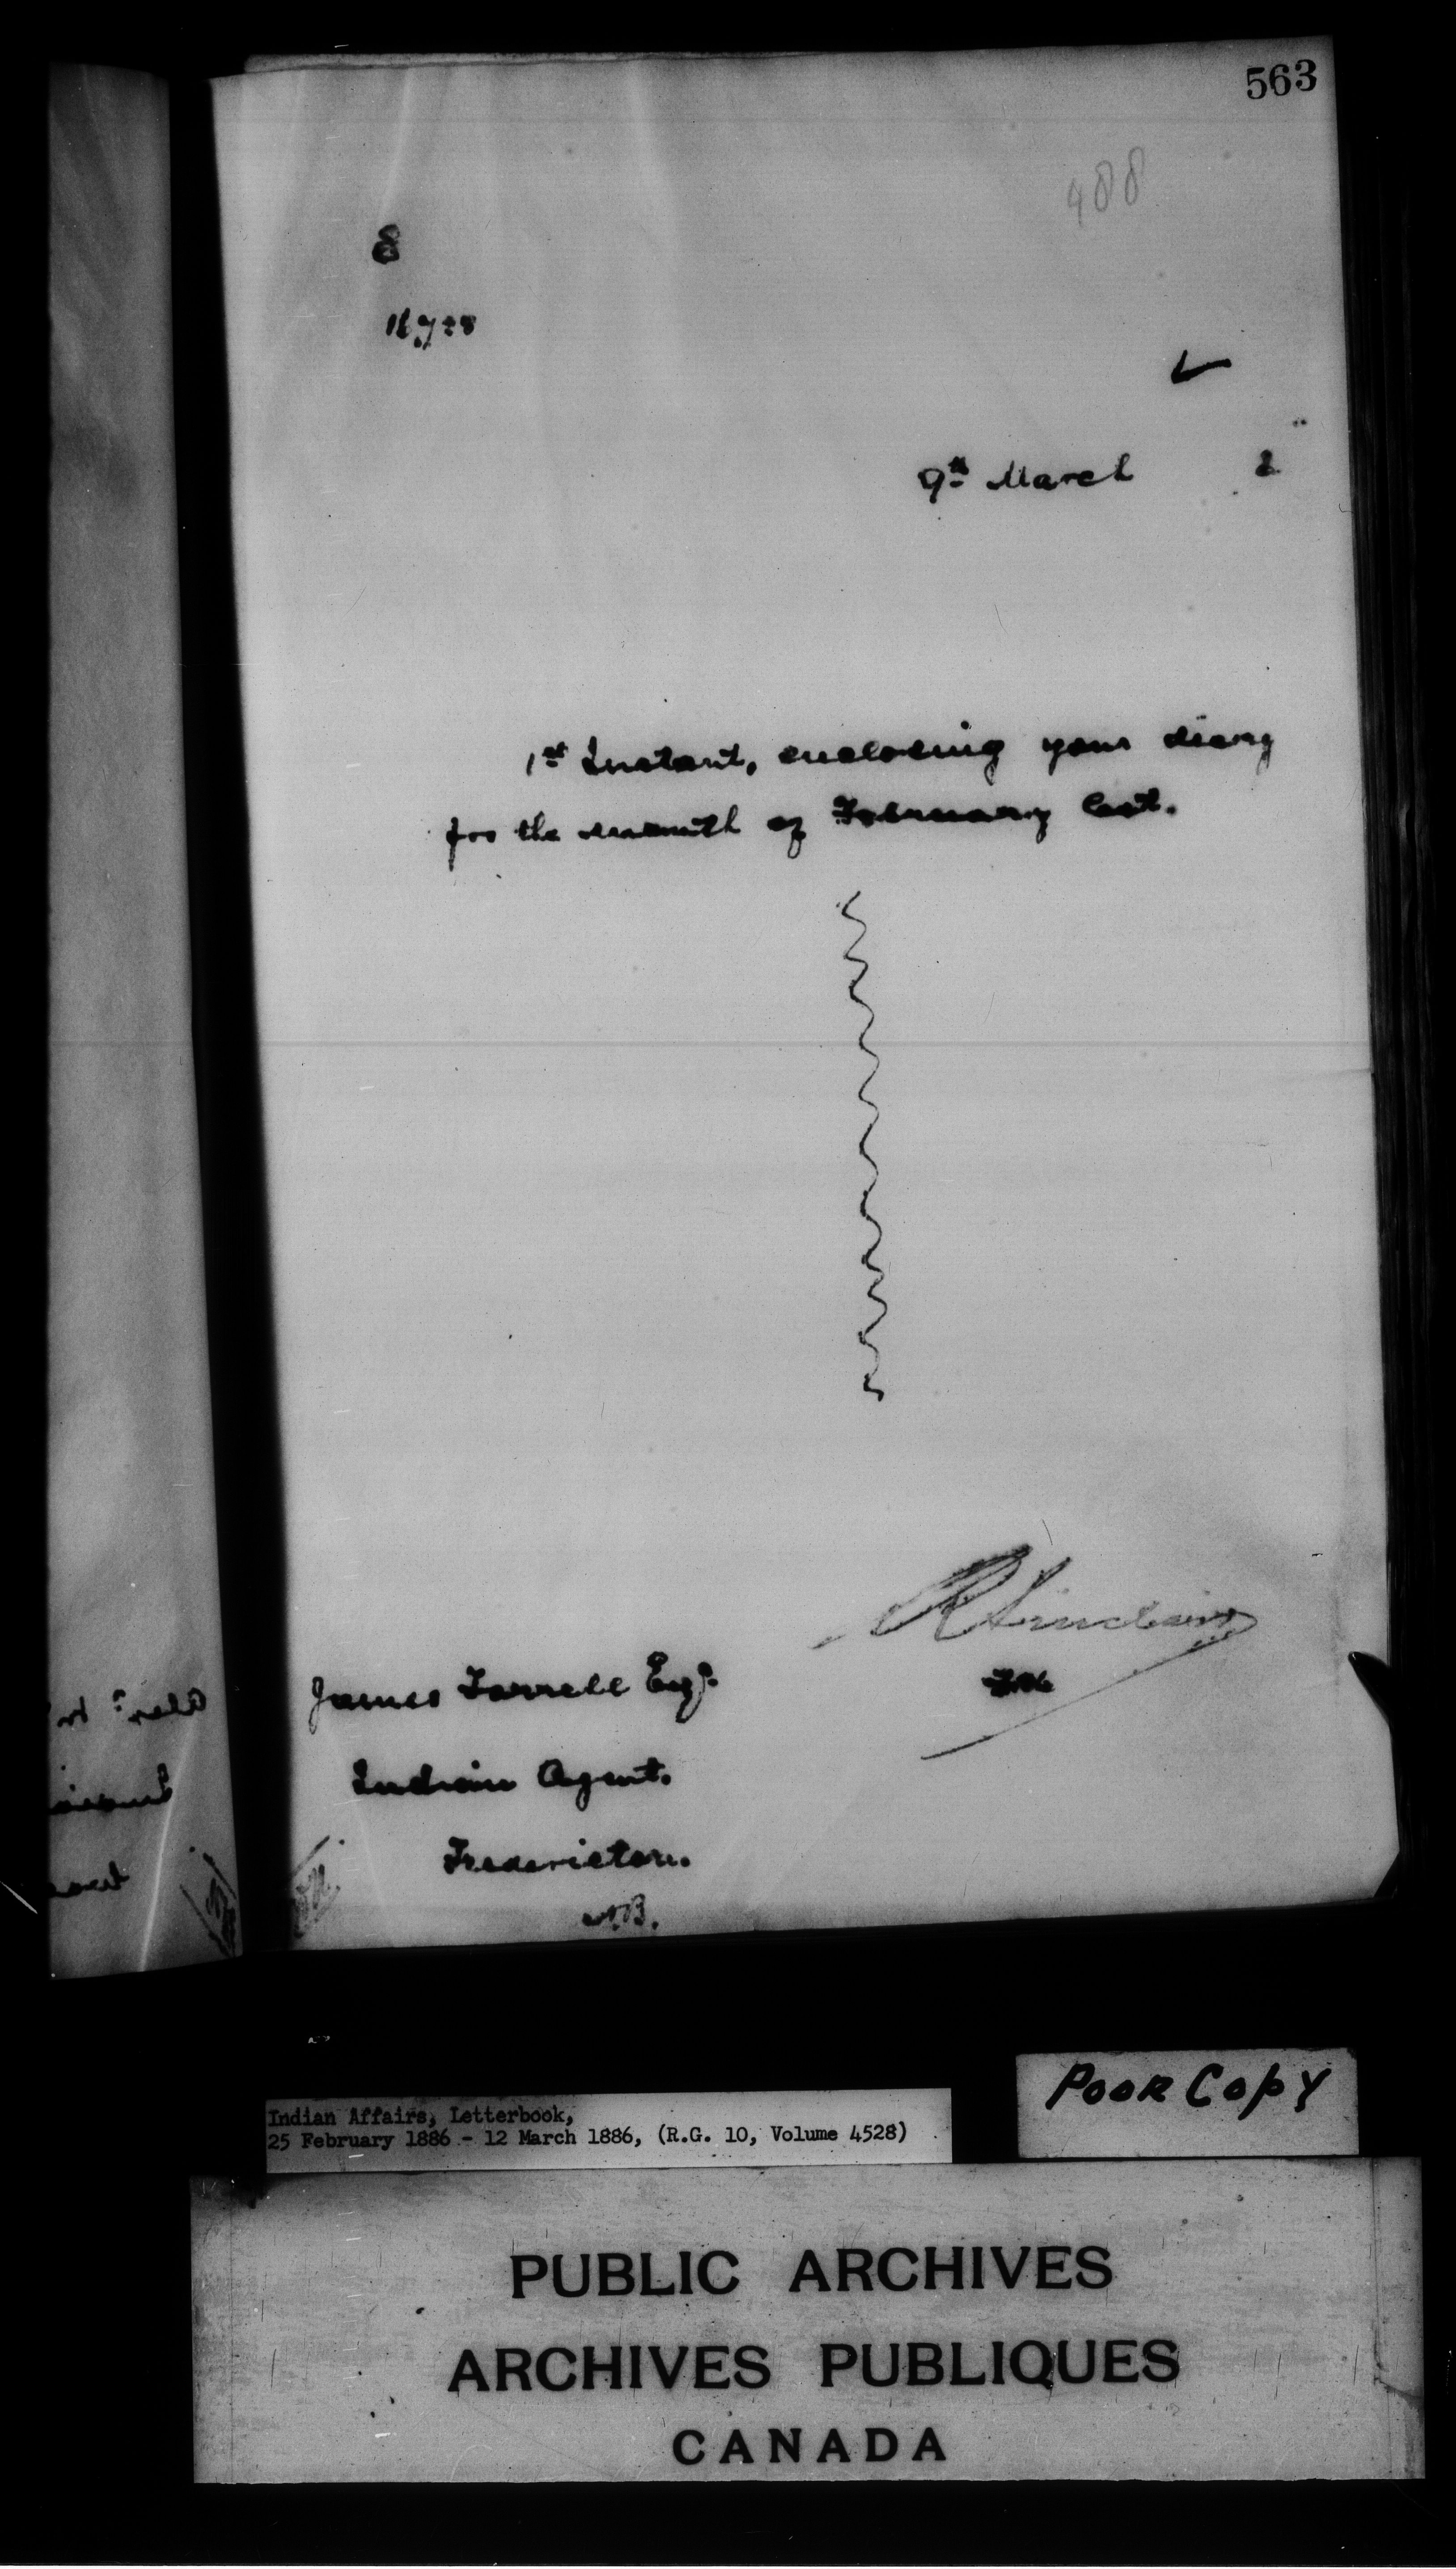 563
488
8
9th March
1st Instant, enclosing your diary
for the month of February last.
R Sinclair
James Farrell Esq.
Indian Agent.
Fredericton.
N.B.
Poor Copy
Indian Affairs, Letterbook,
25 February 1886 - 12 March 1886, (R.G. 10, Volume 4528)
PUBLIC ARCHIVES
ARCHIVES PUBLIQUES
CANADA